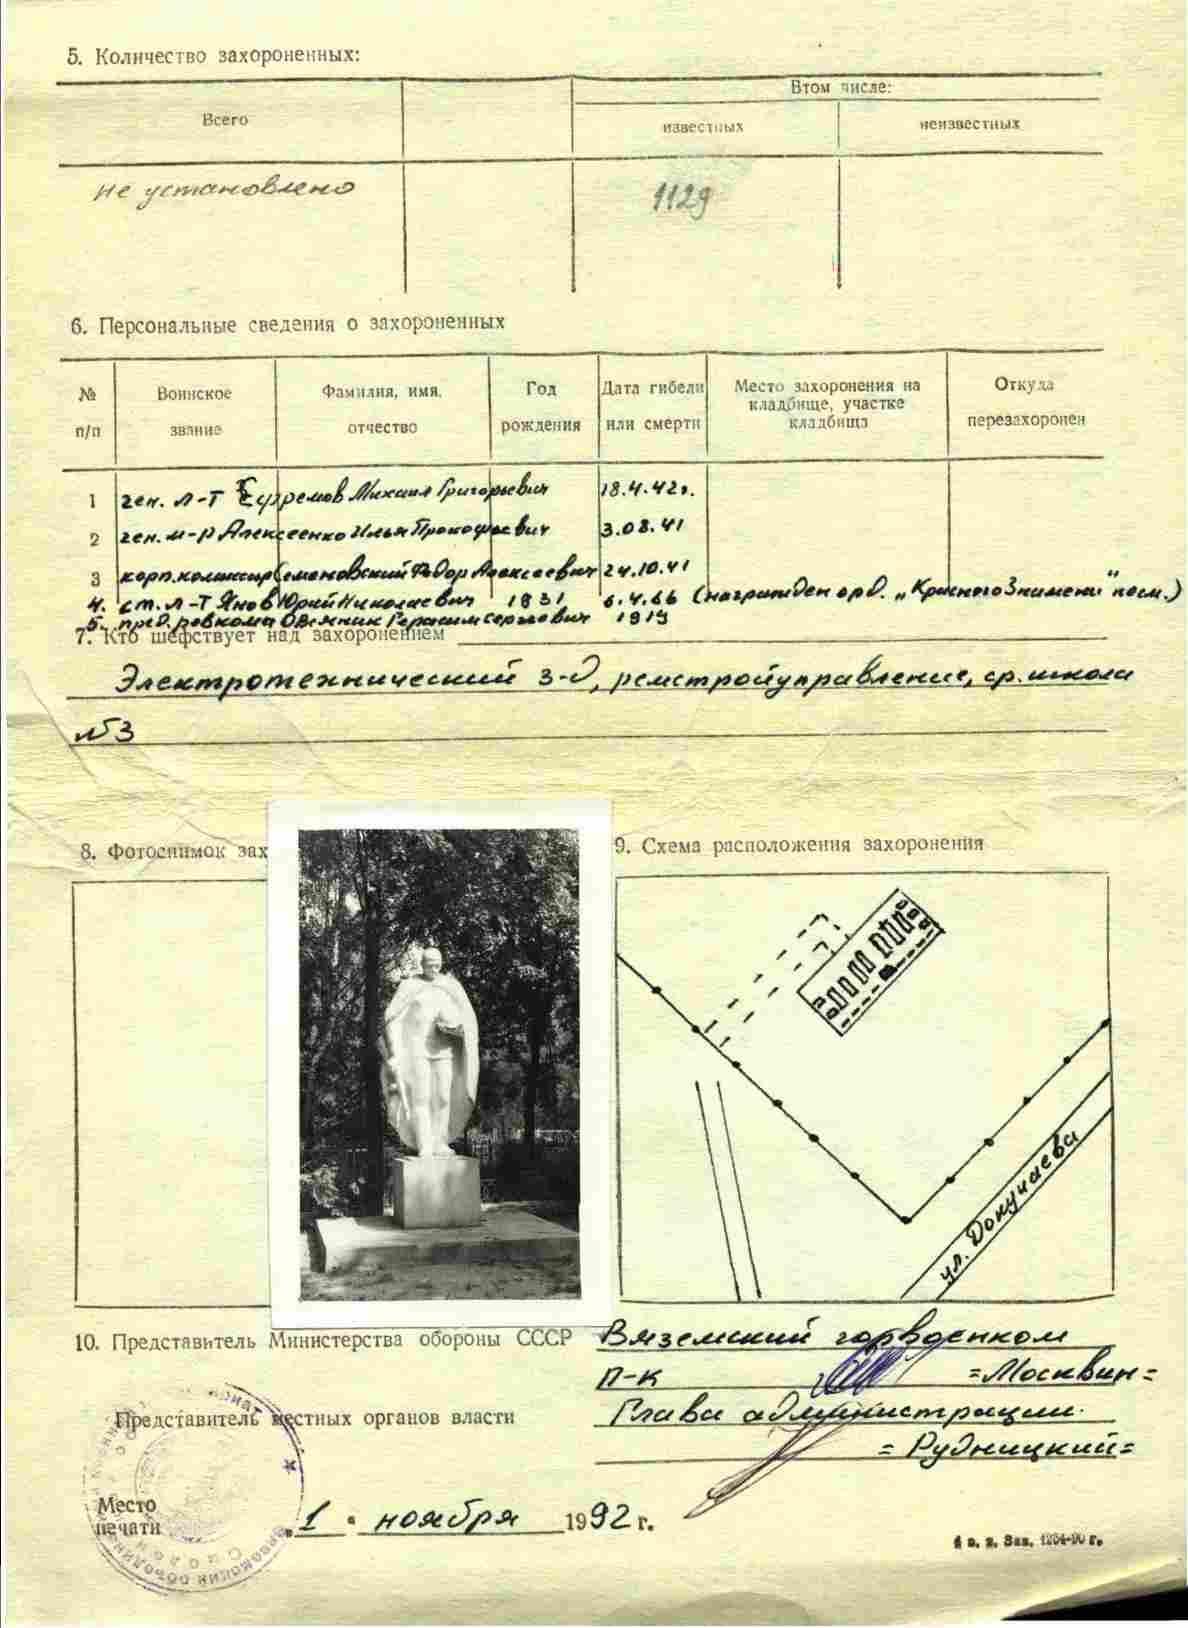 5. Количество захороненных:
Всего
Втом числе:
известных
неизвестных
не установлено
1129
6. Персональные сведения о захороненных
№ п/п
Воинское звание
Фамилия, имя, отчество
Год рождения
Дата гибели или смерти
Место захоронения на кладбище, участке кладбища
Откуда перезахоронен
1 ген. л-т Ефремов Михаил Григорьевич 18.4.42г.
2 ген. м-р Алексеенко Илья Прокофьевич 3.08.41
3 корп. комиссар Семеновский Федор Алексеевич 24.10.41
4. ст. л-т Янов Юрий Николаевич 1931 6.4.66 (награжден орд. „Красного Знамени" посм.)
5. пред. ревкома Овсяник Герасим Сергеевич 1919
7. Кто шефствует над захоронением
Электротехнический з-д, ремстройуправление, ср. школа
№3
8. Фотоснимок зах
9. Схема расположения захоронения
ул. Докучаева
10. Представитель Министерства обороны СССР Вяземский горвоенком
П-к =Москвин=
Представитель местных органов власти Глава администрации
=Рудницкий=
Место
печати
„1" ноября 1992 г.
Зак. 1264-90 г.